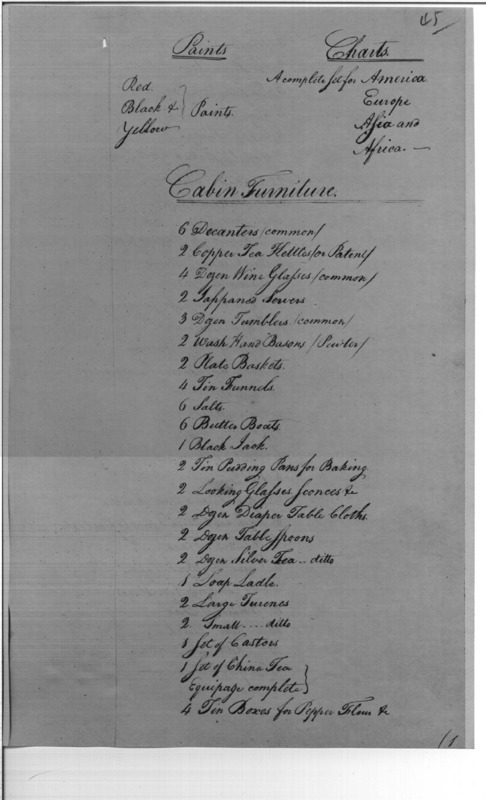 45
Paints
Charts.
Red.
Black &
Yellow
Paints.
A complete Set for America
Europe
Asia and
Africa. —
Cabin Furniture.
6 Decanters /common/
2 Copper Tea Kettles /or Patent/
4 Dozen Wine Glasses /common/
2 Jappaned Servers
3 Dozen Tumblers /common/
2 Wash Hand Basons /Pewter/
2 Plate Baskets.
4 Tin Funnels.
6 Salts.
6 Butter Boats.
1 Black Jack.
2 Tin Pudding Pans for Baking
2 Looking Glasses Sconces &c
2 Dozen Diaper Table Cloths.
2 Dozen Table Spoons
2 Dozen Silver Tea .. ditto
1 Soop Ladle.
2 Large Turenes
2. Small .... ditto
1 Set of Castors
1 Set of China Tea
Equipage complete
4 Tin Boxes for Pepper Flour &c